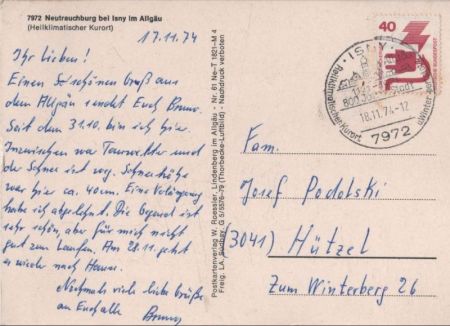 7972 Neutrauchburg bei Isny im Allgäu
(Heilklimatischer Kurort)
17.11.74
Ihr Lieben!
Einen schönen Gruß aus
dem Allgäu sendet Euch Bruno.
Seit dem 31.10. bin ich hier.
Inzwischen war Tauwetter und
der Schnee ist weg. Schneehöhe
war hier ca. 40cm. Eine Verlängerung
habe ich abgelehnt. Die Gegend ist
sehr schön, aber für mich nicht
gut zum Laufen. Am 28.11. geht
es wieder nach Hause.
Nochmals viele liebe Grüße
an Euch alle Bruno
Postkartenverlag W. Roessler, Lindenberg im Allgäu - Nr. 61 Ne-T 1821-M 4
Freig. LA. Südbay. G 5/5576-79 (Thorbecke-Luftbild) - Nachdruck verboten
40
DEUTSCHE BUNDESPOST
ISNY
Heilklimatischer Kurort
800 Jahre Stadt
18.11.74-12
7972
Fam.
Josef Podolski
(3041) Hützel
Zum Winterberg 26